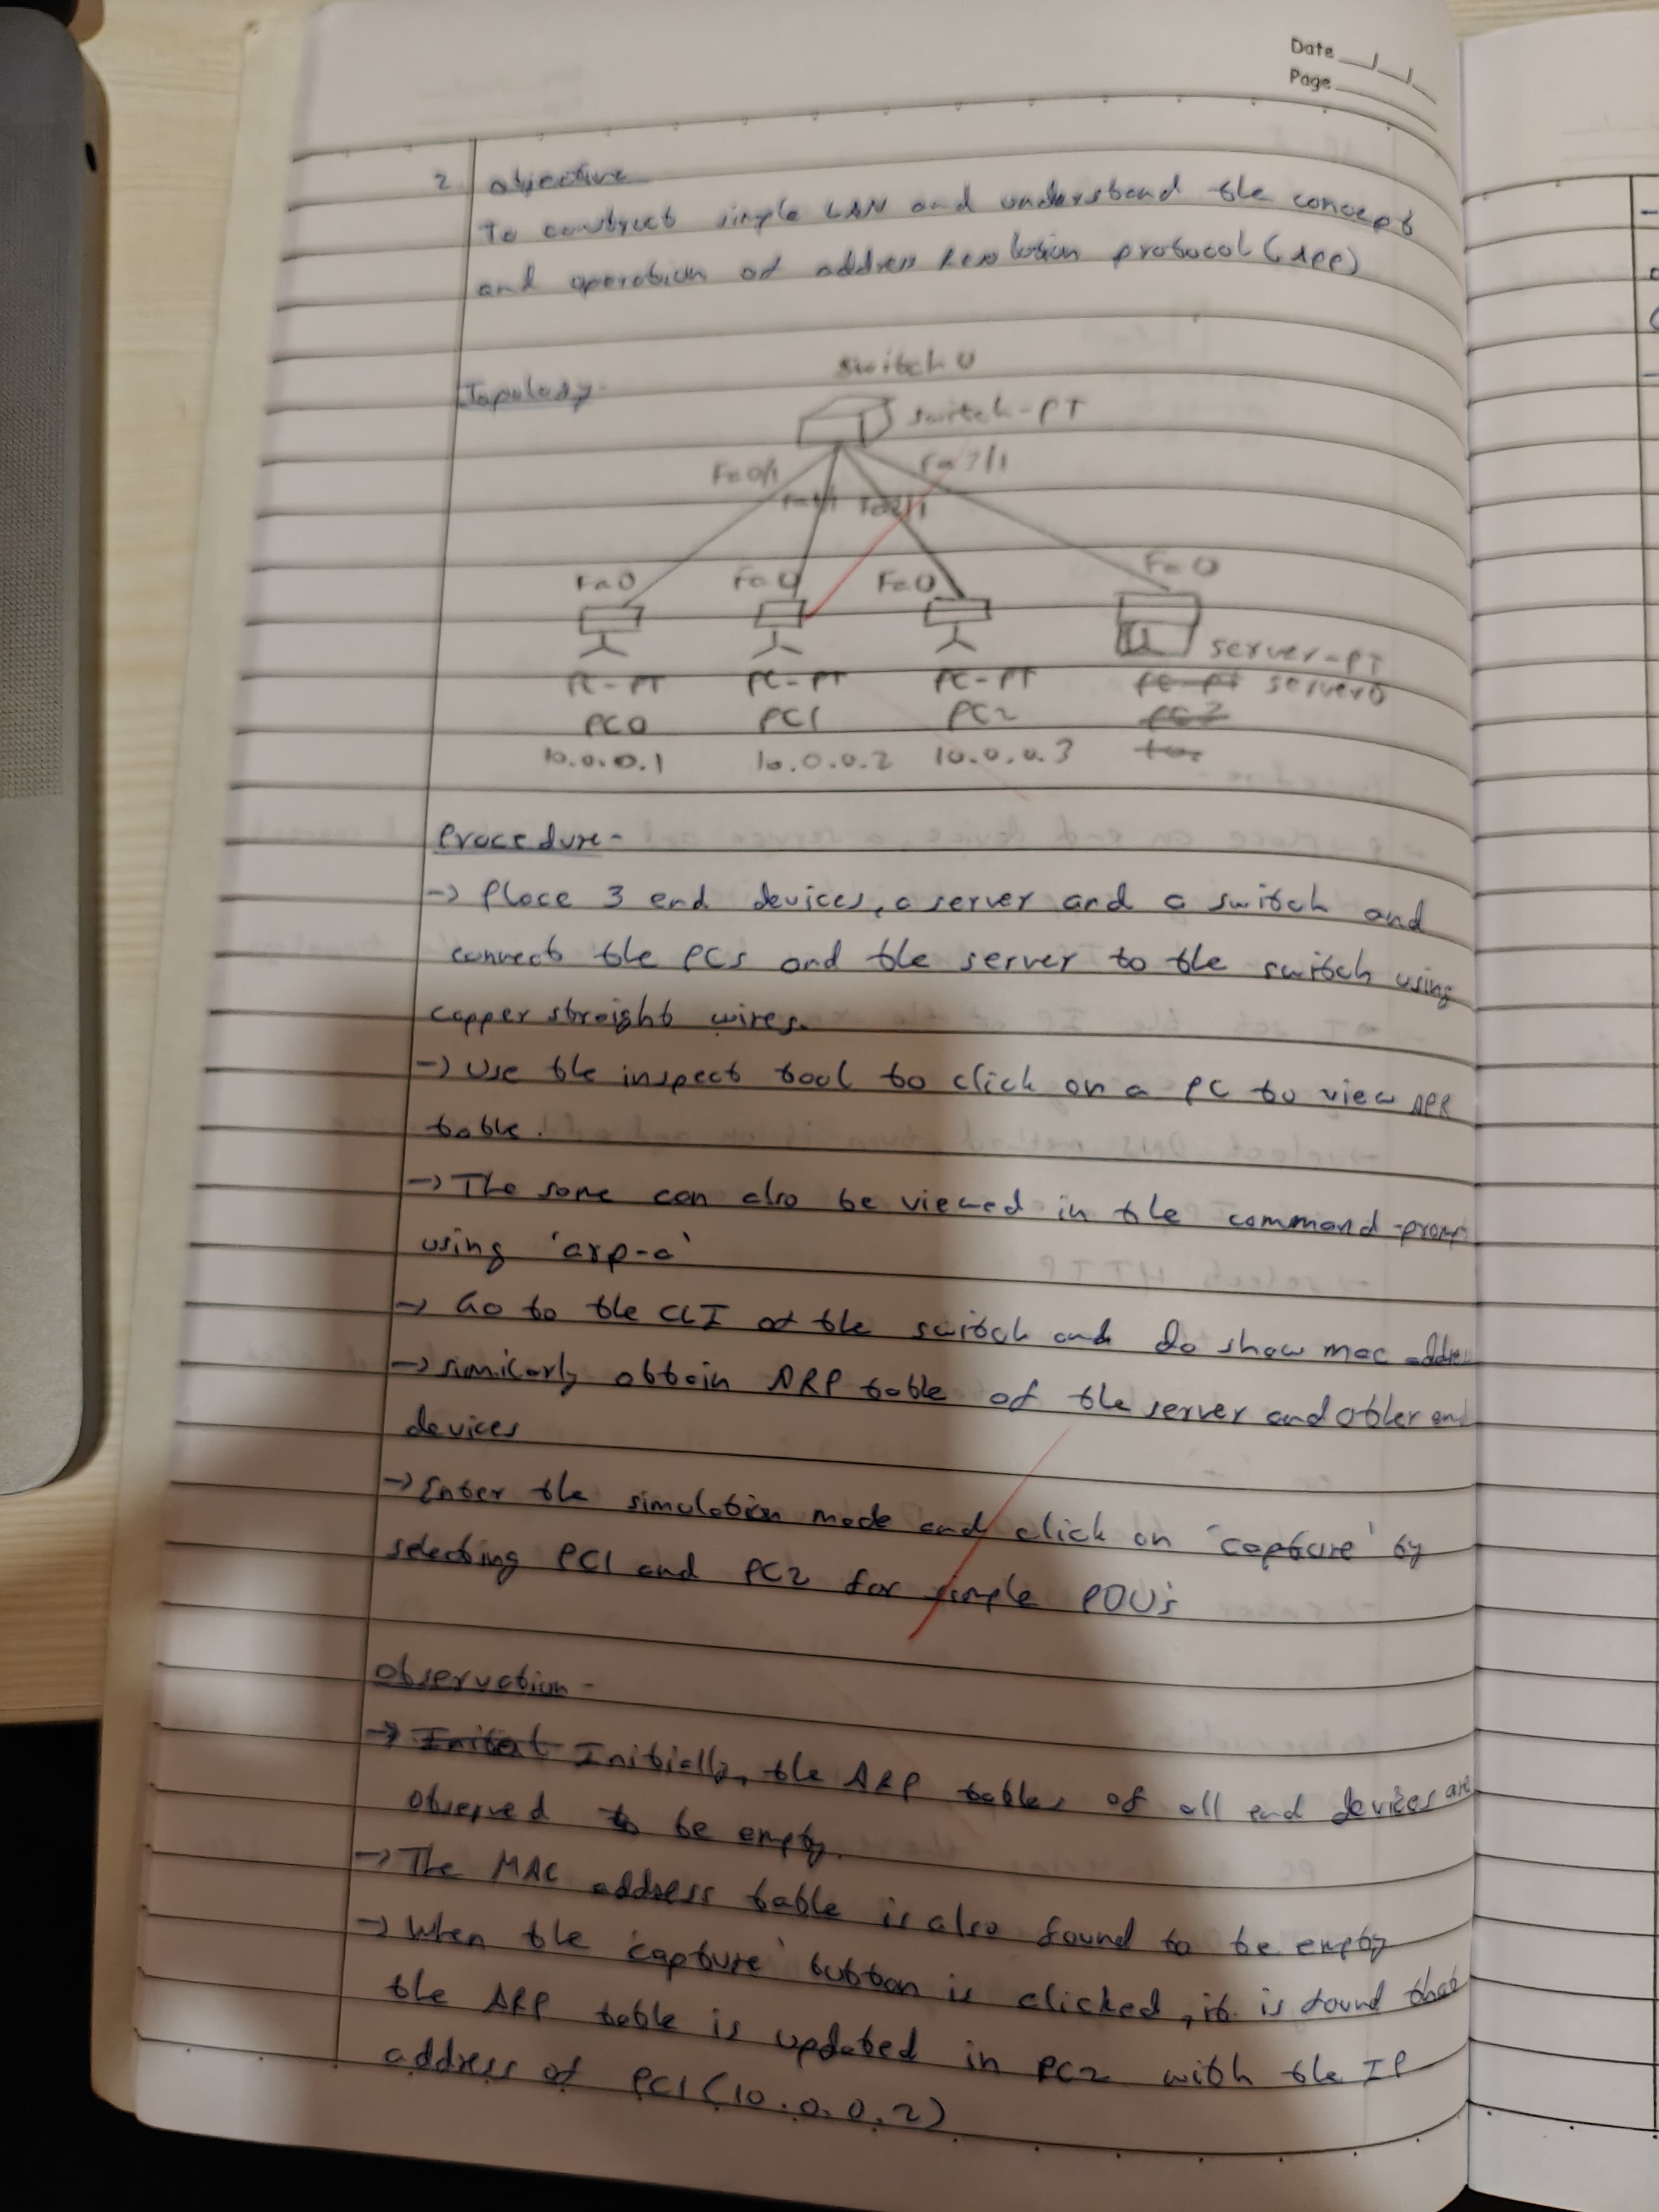 Date
Page
2. objective
To construct simple LAN and understand the concept
and operation of address Resolution protocol (ARP)
Topology-
Switch 0
switch-PT
Fa0/1 Fa1/1 Fa2/1 Fa3/1
Fa0 Fa0 Fa0 Fa0
PC-PT PC-PT PC-PT server-PT
PC0 PC1 PC2 server0
10.0.0.1 10.0.0.2 10.0.0.3
Procedure-
→ Place 3 end devices, a server and a switch and
connect the PCs and the server to the switch using
copper straight wires.
→ Use the inspect tool to click on a PC to view APR
table.
→ The same can also be viewed in the command-promp
using 'arp-a'
→ Go to the CLI of the switch and do show mac addres
→ similarly obtain ARP table of the server and other end
devices
→ Enter the simulation mode and click on 'capture' by
selecting PC1 and PC2 for simple PDU's
Observation-
→ Initially, the ARP tables of all end devices are
observed to be empty.
→ The MAC address table is also found to be empty
→ When the 'capture' button is clicked, it is found that
the ARP table is updated in PC2 with the IP
address of PC1 (10.0.0.2)